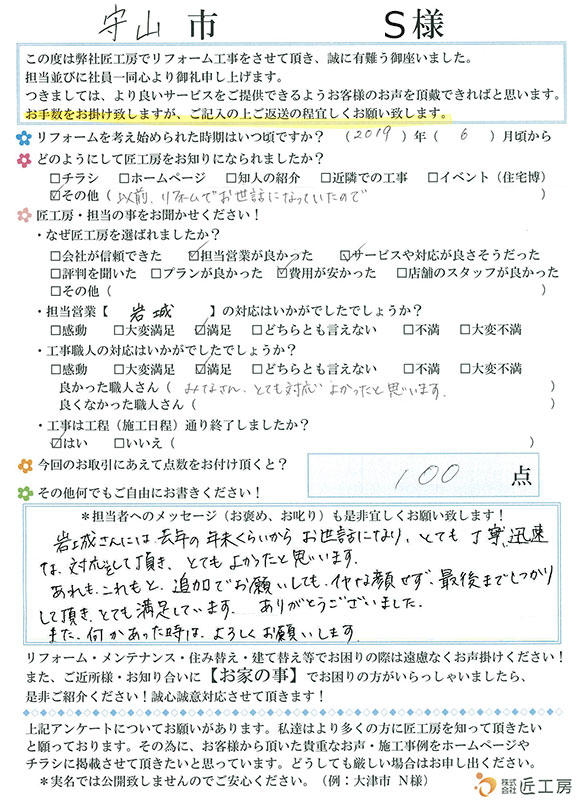 守山 市 S様
この度は弊社匠工房でリフォーム工事をさせて頂き、誠に有難う御座いました。
担当並びに社員一同心より御礼申し上げます。
つきましては、より良いサービスをご提供できるようお客様のお声を頂戴できればと思います。
お手数をお掛け致しますが、ご記入の上ご返送の程宜しくお願い致します。
リフォームを考え始められた時期はいつ頃ですか？ （2019）年（ 6 ）月頃から
どのようにして匠工房をお知りになられましたか？
□チラシ □ホームページ □知人の紹介 □近隣での工事 □イベント（住宅博）
☑その他（以前、リフォームでお世話になっていたので ）
匠工房・担当の事をお聞かせください！
・なぜ匠工房を選ばれましたか？
□会社が信頼できた ☑担当営業が良かった ☑サービスや対応が良さそうだった
□評判を聞いた □プランが良かった ☑費用が安かった □店舗のスタッフが良かった
□その他（ ）
・担当営業【 岩城 】の対応はいかがでしたでしょうか？
□感動 □大変満足 ☑満足 □どちらとも言えない □不満 □大変不満
・工事職人の対応はいかがでしたでしょうか？
□感動 □大変満足 ☑満足 □どちらとも言えない □不満 □大変不満
良かった職人さん（ みなさん、とても対応よかったと思います。 ）
良くなかった職人さん（ ）
・工事は工程（施工日程）通り終了しましたか？
☑はい □いいえ（ ）
今回のお取引にあえて点数をお付け頂くと？ 100 点
その他何でもご自由にお書きください！
＊担当者へのメッセージ（お褒め、お叱り）も是非宜しくお願い致します！
岩城さんには去年の年末くらいからお世話になり、とても丁寧、迅速
な対応をして頂き、とてもよかったと思います。
あれも、これもと、追加でお願いしても、イヤな顔せず、最後までしっかり
して頂き、とても満足しています。 ありがとうございました。
また、何かあった時は、よろしくお願いします。
リフォーム・メンテナンス・住み替え・建て替え等でお困りの際は遠慮なくお声掛けください！
また、ご近所様・お知り合いに【お家の事】でお困りの方がいらっしゃいましたら、
是非ご紹介ください！誠心誠意対応させて頂きます！
上記アンケートについてお願いがあります。私達はより多くの方に匠工房を知って頂きたい
と願っております。その為に、お客様から頂いた貴重なお声・施工事例をホームページや
チラシに掲載させて頂きたいと思っています。どうしても厳しい場合はお申し出ください。
＊実名では公開致しませんのでご安心ください。（例：大津市 N様）
株式会社 匠工房